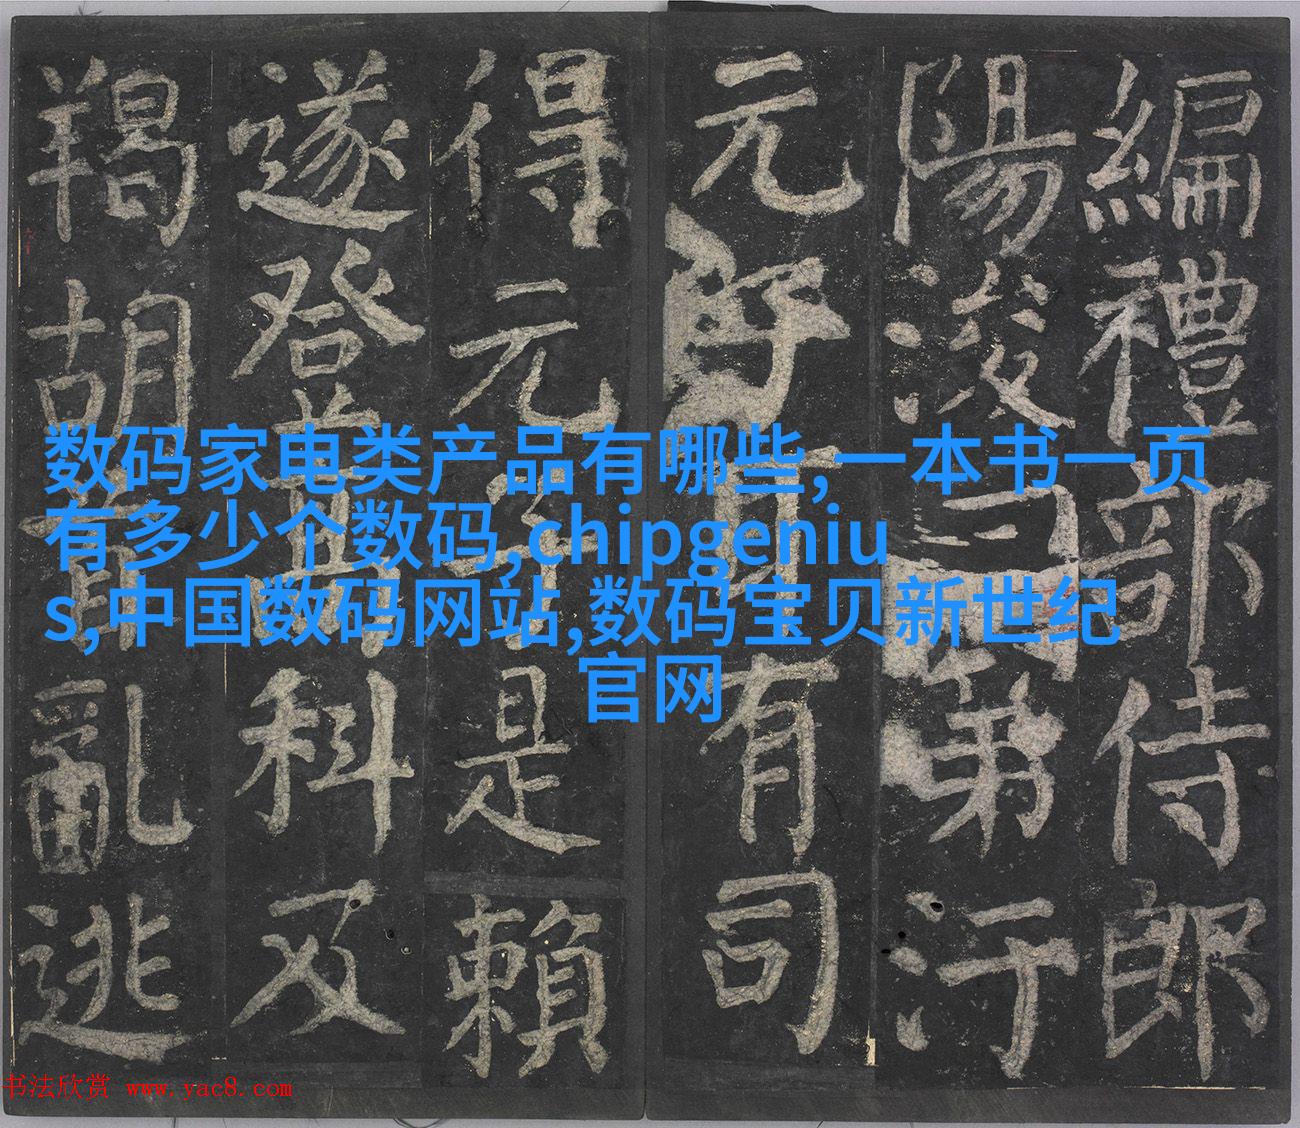 編禮部侍郎
陽浚曰第汙
元子耳有司
得元子是賴
遂登高科及
羯胡首亂逃
数码家电类产品有哪些,一本书一页
有多少个数码,chipgeniu
s,中国数码网站,数码宝贝新世纪
官网
书法欣赏 www.yac8.com